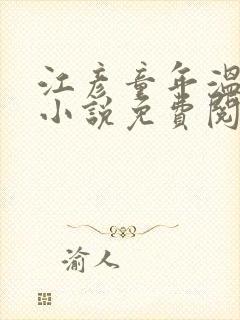 江彦童年温
小说免費閱
渝人